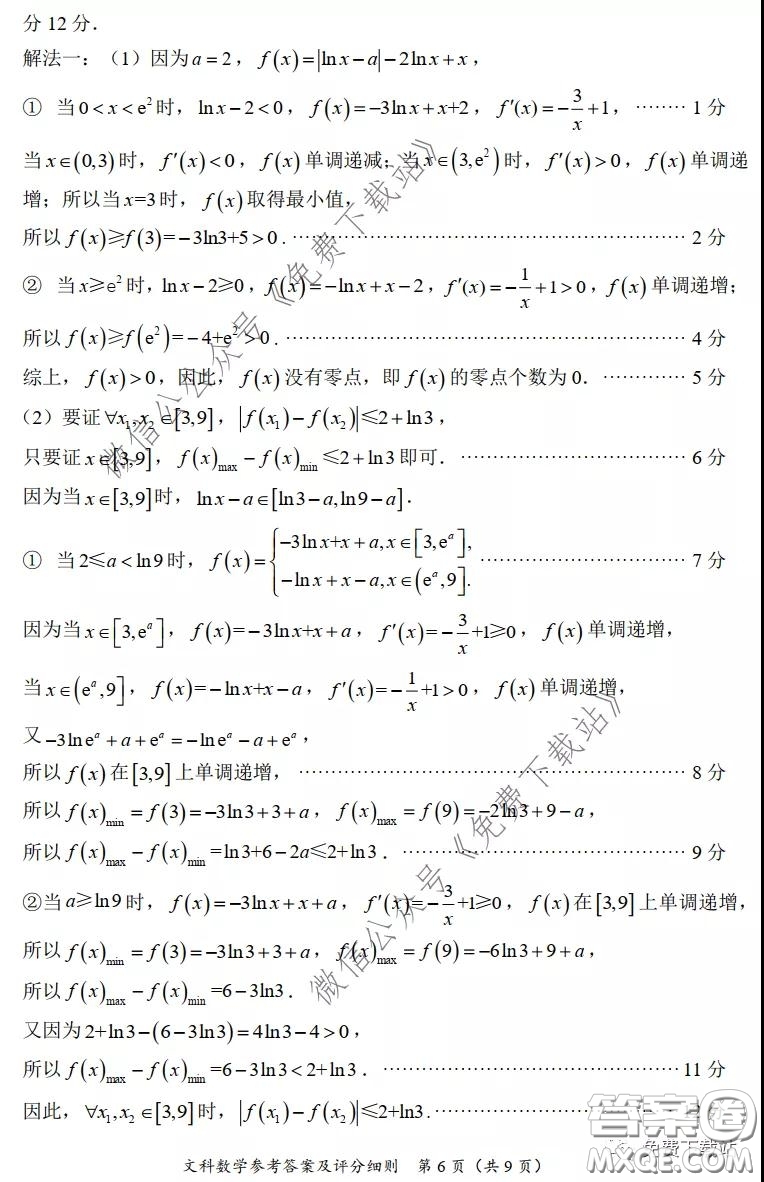 分 12 分．
解法一：（1）因为 a = 2，f(x)=|ln x − a|−2ln x + x，
① 当 0 < x < e² 时，ln x − 2 < 0，f(x)=−3ln x + x+2，f′(x)=−3/x+1，········ 1 分
当 x∈(0,3) 时，f′(x)<0，f(x) 单调递减；当 x∈(3,e²) 时，f′(x)>0，f(x) 单调递
增；所以当 x=3 时，f(x) 取得最小值，
所以 f(x)≥f(3)=−3ln3+5>0．········ 2 分
② 当 x≥e² 时，ln x−2≥0，f(x)=−ln x+x−2，f′(x)=−1/x+1>0，f(x) 单调递增；
所以 f(x)≥f(e²)=−4+e²>0．········ 4 分
综上，f(x)>0，因此，f(x) 没有零点，即 f(x) 的零点个数为 0．········ 5 分
（2）要证 ∀x₁,x₂∈[3,9]，|f(x₁)−f(x₂)|≤2+ln3，
只要证 x∈[3,9]，f(x)max − f(x)min ≤2+ln3 即可．········ 6 分
因为当 x∈[3,9] 时，ln x−a∈[ln3−a,ln9−a]．
① 当 2≤a<ln9 时，f(x)={−3ln x+x+a,x∈[3,eᵃ], −ln x+x−a,x∈(eᵃ,9]. ········ 7 分
因为当 x∈[3,eᵃ]，f(x)=−3ln x+x+a，f′(x)=−3/x+1≥0，f(x) 单调递增，
当 x∈(eᵃ,9]，f(x)=−ln x+x−a，f′(x)=−1/x+1>0，f(x) 单调递增，
又 −3ln eᵃ+a+eᵃ=−ln eᵃ−a+eᵃ，
所以 f(x) 在 [3,9] 上单调递增，········ 8 分
所以 f(x)min = f(3)=−3ln3+3+a，f(x)max = f(9)=−2ln3+9−a，
所以 f(x)max − f(x)min =ln3+6−2a≤2+ln3．········ 9 分
②当 a≥ln9 时，f(x)=−3ln x+x+a，f′(x)=−3/x+1≥0，f(x) 在 [3,9] 上单调递增，
所以 f(x)min = f(3)=−3ln3+3+a，f(x)max = f(9)=−6ln3+9+a，
所以 f(x)max − f(x)min =6−3ln3．
又因为 2+ln3−(6−3ln3)=4ln3−4>0，
所以 f(x)max − f(x)min =6−3ln3<2+ln3．········ 11 分
因此，∀x₁,x₂∈[3,9] 时，|f(x₁)−f(x₂)|≤2+ln3．········
文科数学参考答案及评分细则 第 6 页（共 9 页）
微信公众号《免费下载站》
微信公众号《免费下载站》
答案圈
免费下载站
MXQE.COM